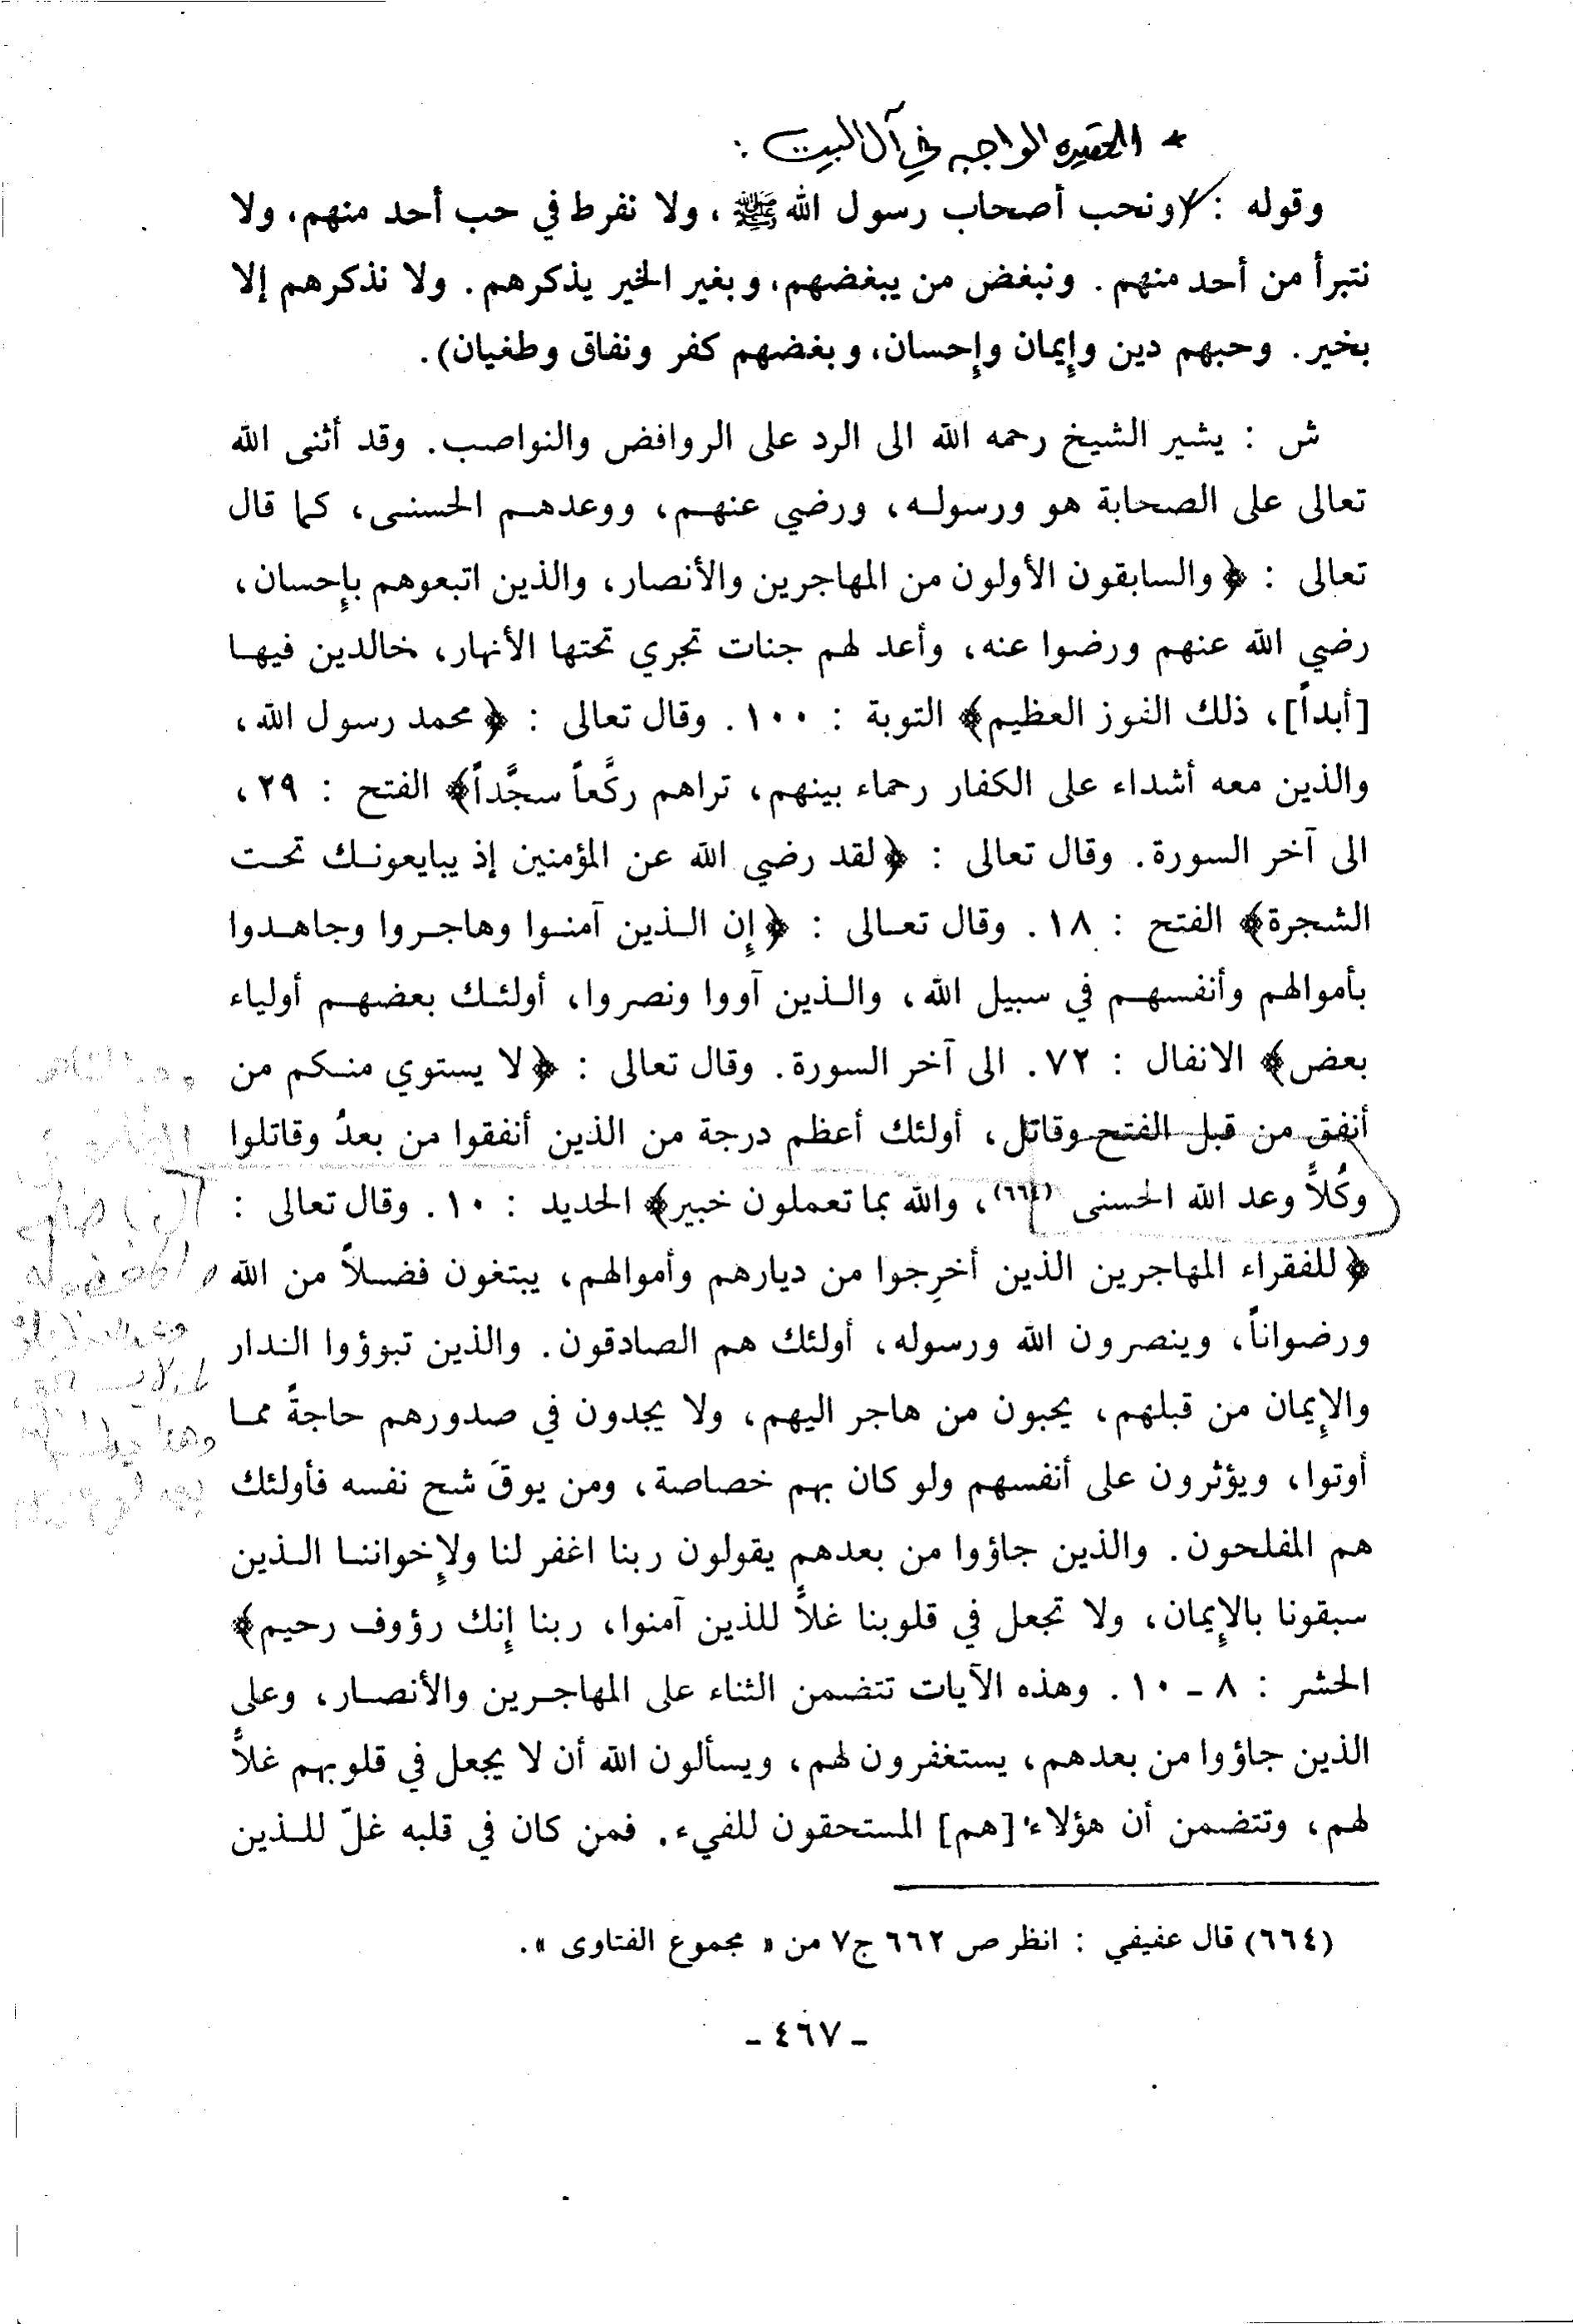 * العقيده الواجبه في آل البيت :
وقوله : (ونحب أصحاب رسول الله ﷺ ، ولا نفرط في حب أحد منهم، ولا
نتبرأ من أحد منهم. ونبغض من يبغضهم، وبغير الخير يذكرهم. ولا نذكرهم إلا
بخير. وحبهم دين وإيمان وإحسان، وبغضهم كفر ونفاق وطغيان).
ش : يشير الشيخ رحمه الله الى الرد على الروافض والنواصب. وقد أثنى الله
تعالى على الصحابة هو ورسوله، ورضي عنهم، ووعدهم الحسنى، كما قال
تعالى : ﴿والسابقون الأولون من المهاجرين والأنصار، والذين اتبعوهم بإحسان،
رضي الله عنهم ورضوا عنه، وأعد لهم جنات تجري تحتها الأنهار، خالدين فيها
[أبداً]، ذلك الفوز العظيم﴾ التوبة : ١٠٠. وقال تعالى : ﴿محمد رسول الله،
والذين معه أشداء على الكفار رحماء بينهم، تراهم ركَّعاً سجَّداً﴾ الفتح : ٢٩،
الى آخر السورة. وقال تعالى : ﴿لقد رضي الله عن المؤمنين إذ يبايعونك تحت
الشجرة﴾ الفتح : ١٨. وقال تعالى : ﴿إن الذين آمنوا وهاجروا وجاهدوا
بأموالهم وأنفسهم في سبيل الله، والذين آووا ونصروا، أولئك بعضهم أولياء
بعض﴾ الانفال : ٧٢. الى آخر السورة. وقال تعالى : ﴿لا يستوي منكم من
أنفق من قبل الفتح وقاتل، أولئك أعظم درجة من الذين أنفقوا من بعدُ وقاتلوا
وكُلاًّ وعد الله الحسنى (٦٦٤)، والله بما تعملون خبير﴾ الحديد : ١٠. وقال تعالى :
﴿للفقراء المهاجرين الذين أخرِجوا من ديارهم وأموالهم، يبتغون فضلاً من الله
ورضواناً، وينصرون الله ورسوله، أولئك هم الصادقون. والذين تبوؤوا الدار
والإيمان من قبلهم، يحبون من هاجر اليهم، ولا يجدون في صدورهم حاجةً مما
أوتوا، ويؤثرون على أنفسهم ولو كان بهم خصاصة، ومن يوقَ شح نفسه فأولئك
هم المفلحون. والذين جاؤوا من بعدهم يقولون ربنا اغفر لنا ولإخواننا الذين
سبقونا بالإيمان، ولا تجعل في قلوبنا غلاًّ للذين آمنوا، ربنا إنك رؤوف رحيم﴾
الحشر : ٨ - ١٠. وهذه الآيات تتضمن الثناء على المهاجرين والأنصار، وعلى
الذين جاؤوا من بعدهم، يستغفرون لهم، ويسألون الله أن لا يجعل في قلوبهم غلاًّ
لهم، وتتضمن أن هؤلاء [هم] المستحقون للفيء. فمن كان في قلبه غلّ للذين
(٦٦٤) قال عفيفي : انظر ص ٦٦٢ ج٧ من « مجموع الفتاوى ».
- ٤٦٧ -